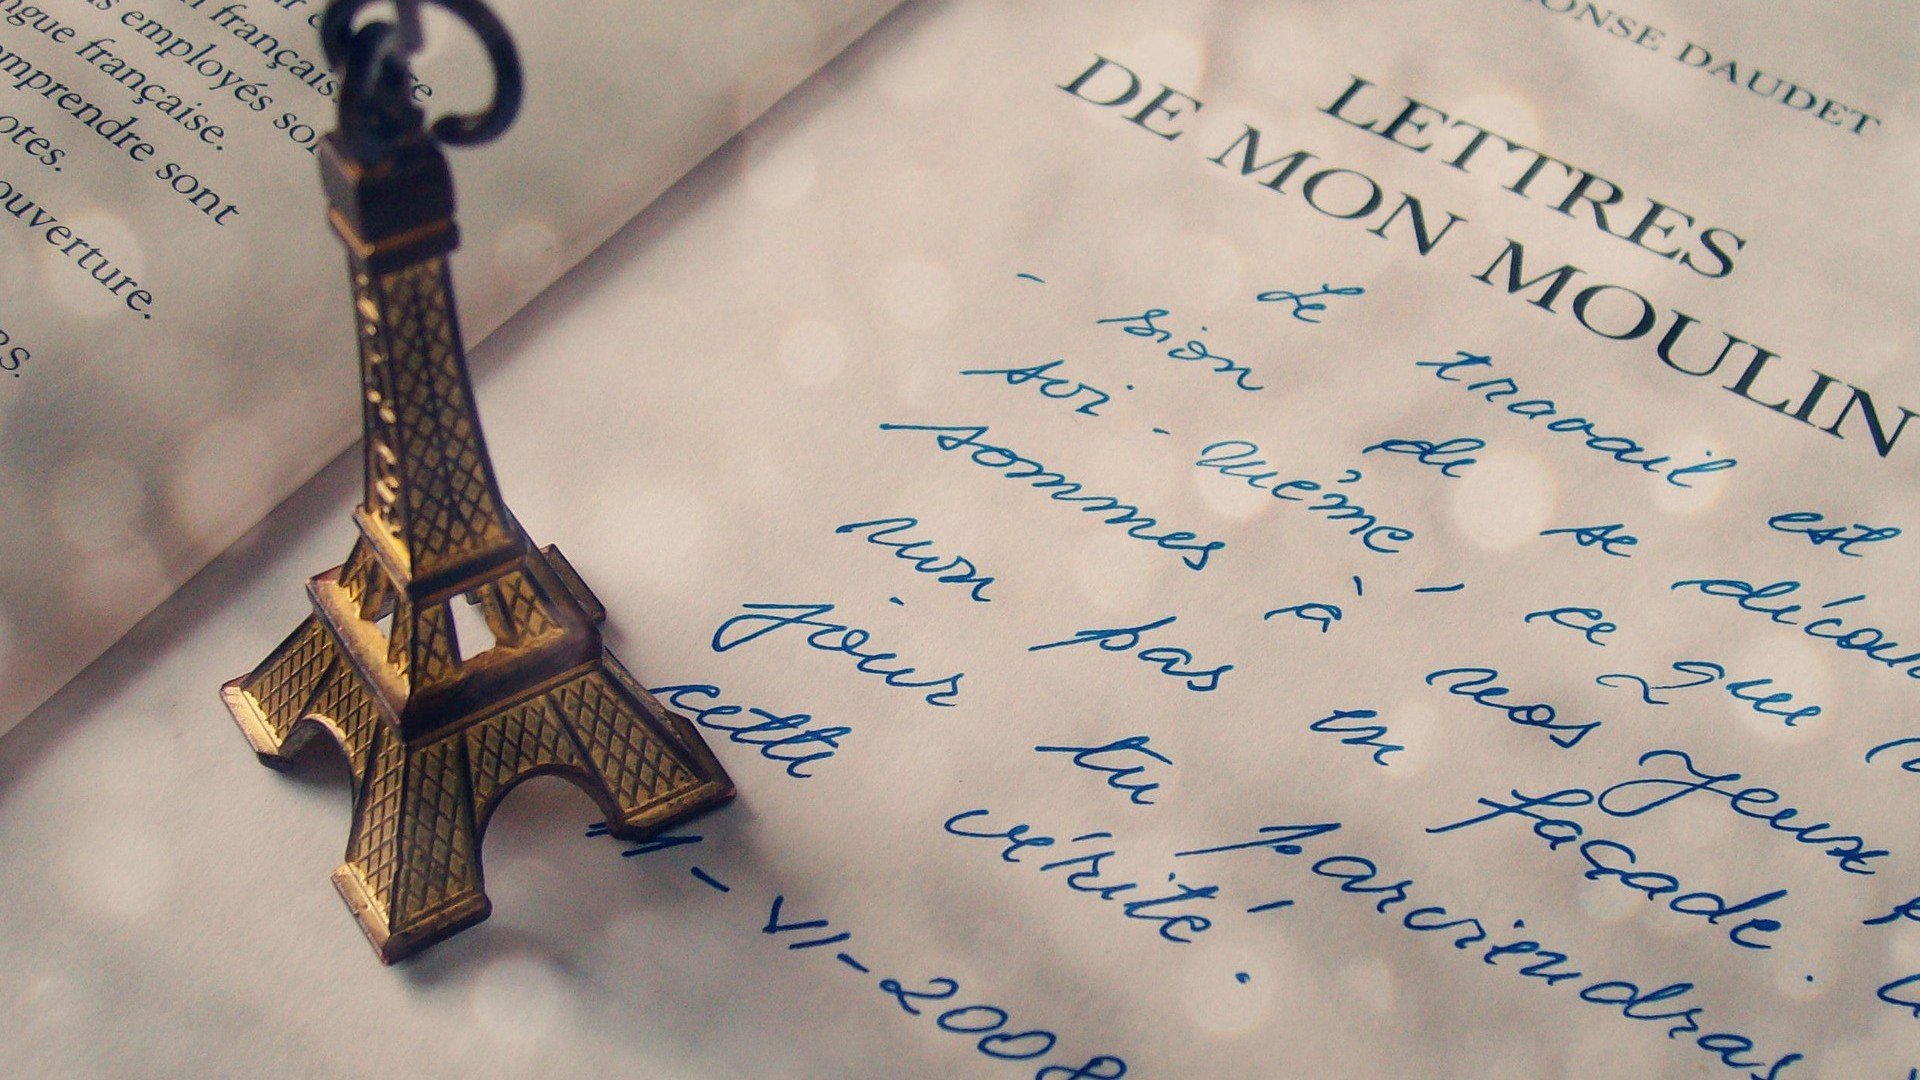 français.
employés
française.
sont
RS.
DAUDET
LETTRES
DE MON MOULIN
Le travail est
-sion de se découv
soi-même, ce que
sommes à nos yeux
non pas en façade.
jour tu parviendras
cette vérité.
11-VI-2008